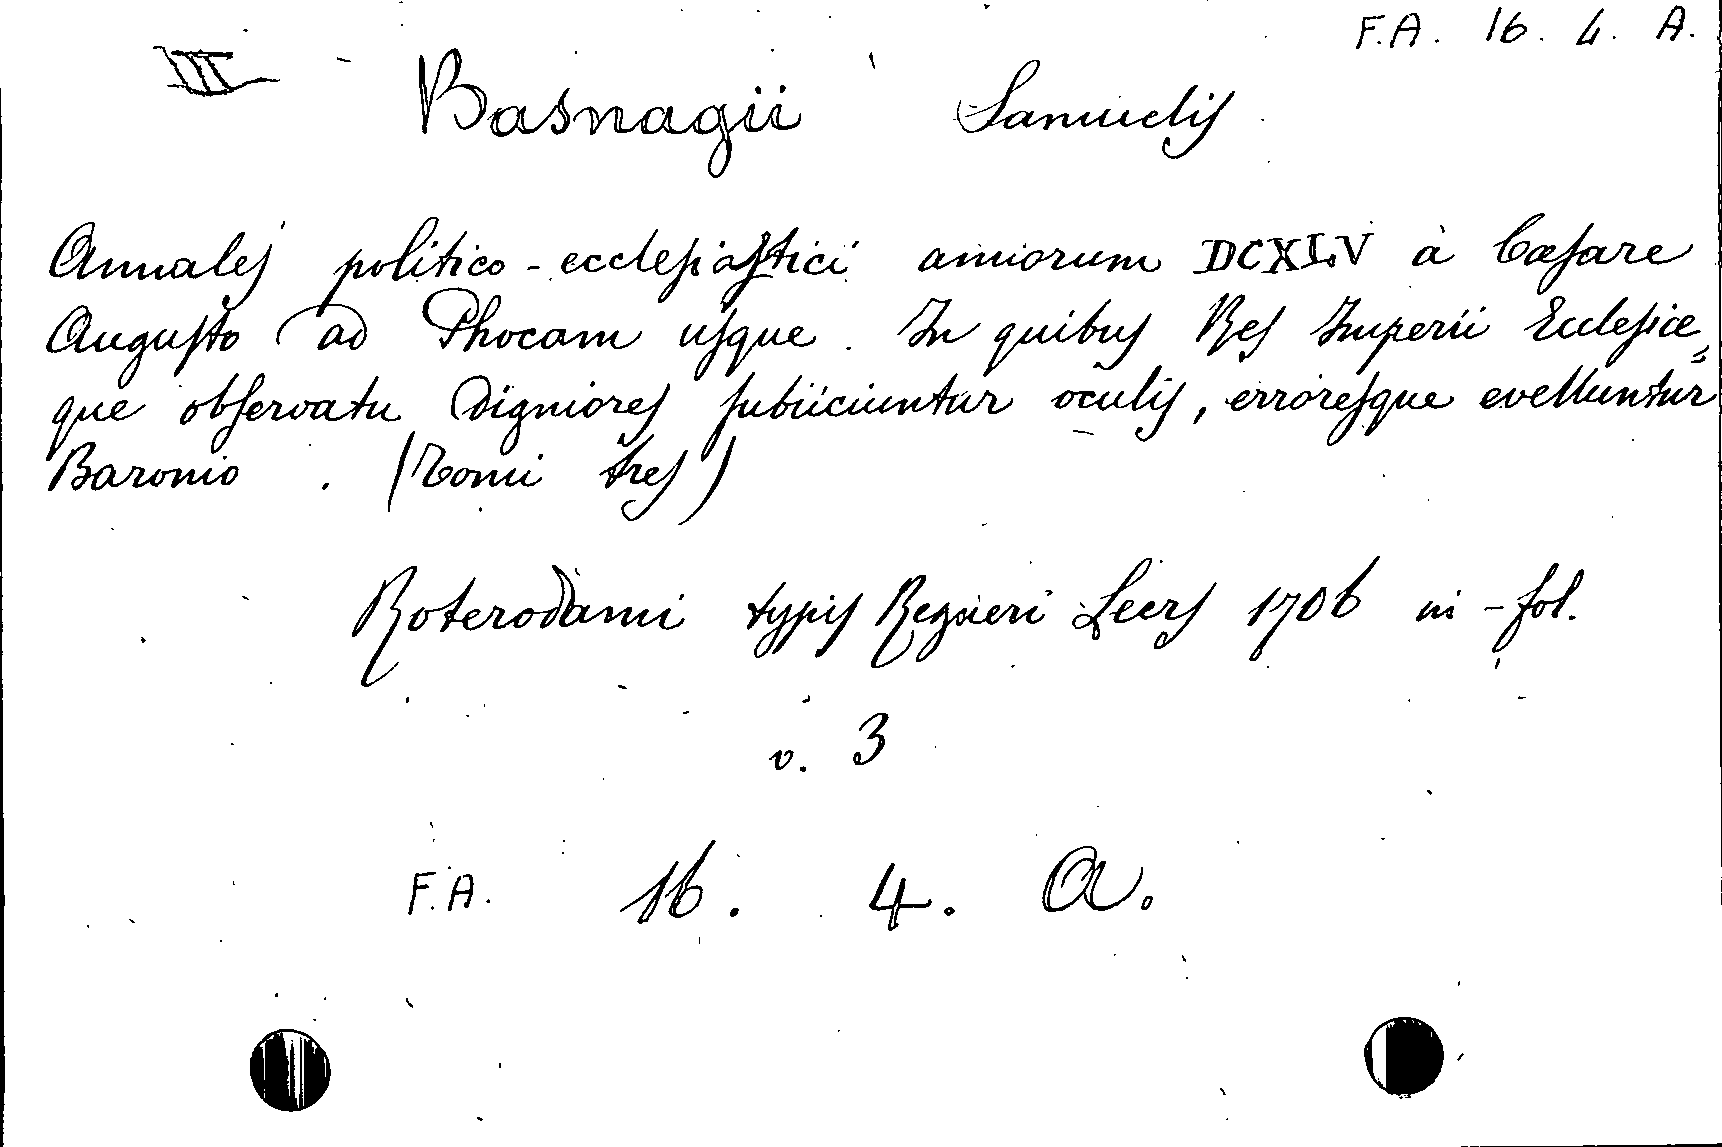 F.A. 16. 4. A.
III Basnagii Samuelis
Annales politico-ecclesiastici annorum DCXLV à Cæsare
Augusto ad Phocam usque. In quibus Res Imperii Ecclesiæ=
que observatu digniores subiiciuntur oculis, erroresque evelluntur
Baronio. (Tomi tres)
Roterodami typis Regneri Leers 1706 in-fol.
v. 3
F.A. 16. 4. A.